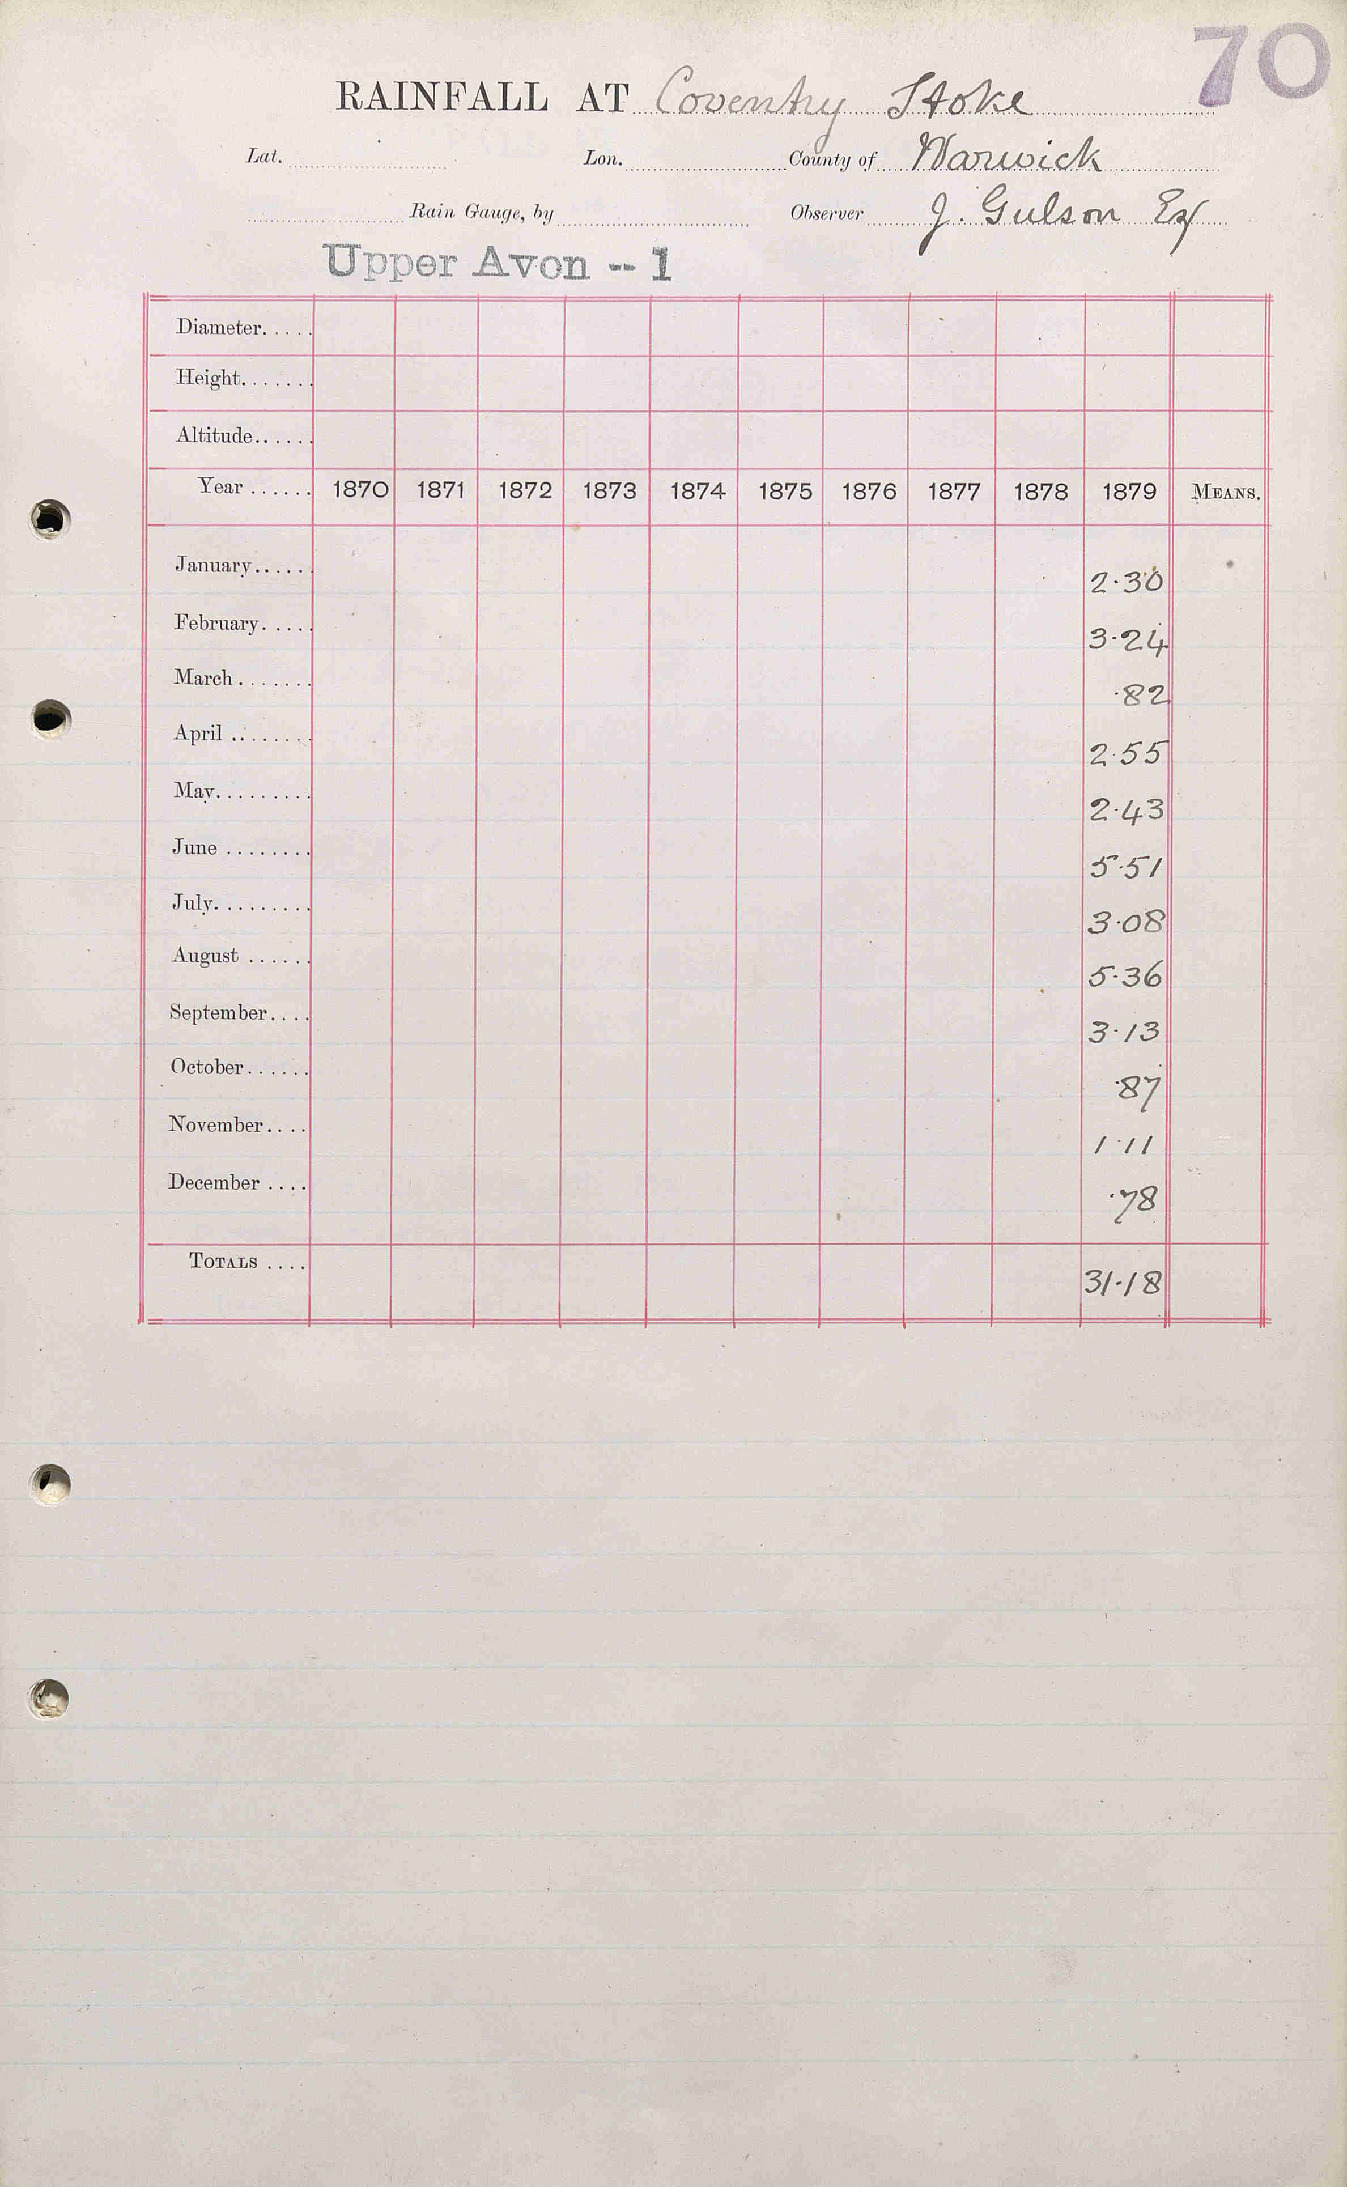 70
RAINFALL AT Coventry Stoke
Lat. Lon. County of Warwick
Rain Gauge, by Observer J. Gulson Esq
Upper Avon -- 1
Diameter.....
Height.......
Altitude......
Year ...... 1870 1871 1872 1873 1874 1875 1876 1877 1878 1879 MEANS.
January...... 2.30
February..... 3.24
March ....... .82
April ........ 2.55
May......... 2.43
June ........ 5.51
July......... 3.08
August ...... 5.36
September.... 3.13
October...... .87
November.... 1.11
December .... .78
TOTALS .... 31.18